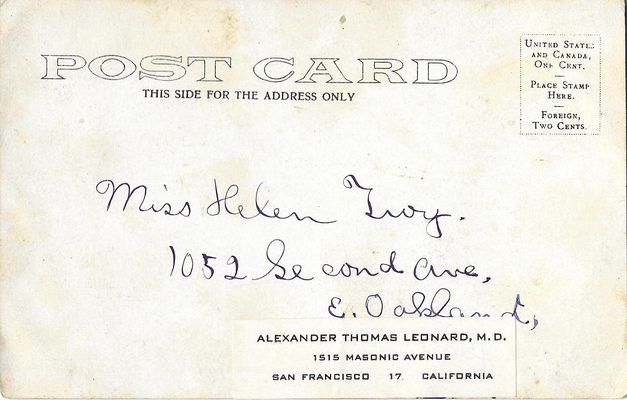 POST CARD
THIS SIDE FOR THE ADDRESS ONLY
UNITED STATES
AND CANADA,
ONE CENT.
PLACE STAMP
HERE.
FOREIGN,
TWO CENTS.
Miss Helen Troy.
1052 Second Ave,
E. Oakland,
ALEXANDER THOMAS LEONARD, M.D.
1515 MASONIC AVENUE
SAN FRANCISCO 17, CALIFORNIA